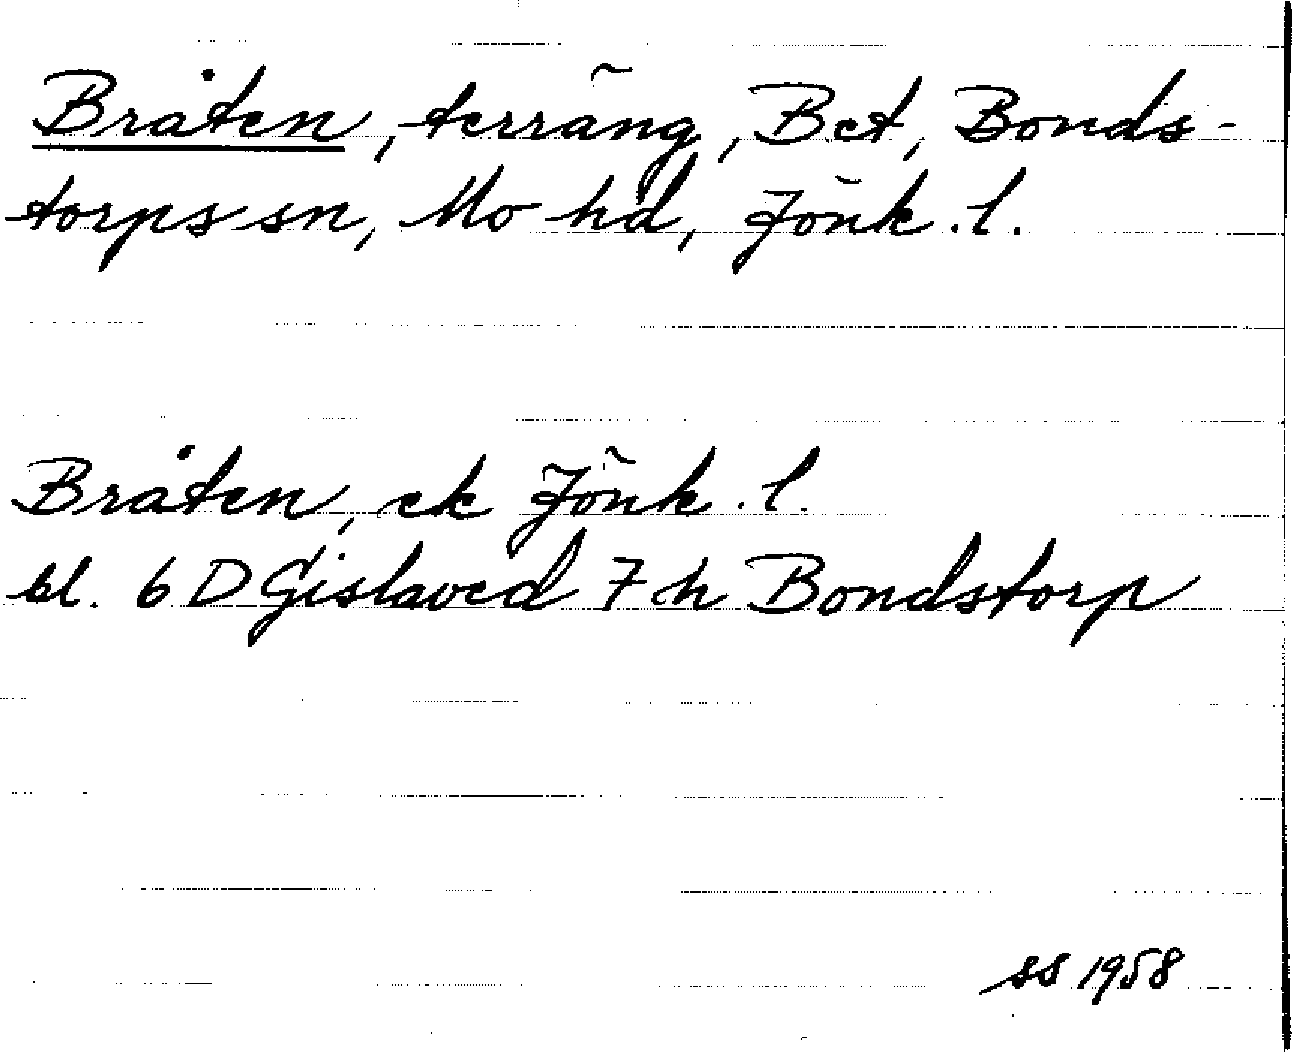 Bråten, terräng, Bet, Bonds-
torps sn, Mo hd, Jönk. l.
Bråten, ek Jönk. l.
bl. 6 D Gislaved 7 h Bondstorp
ss 1958